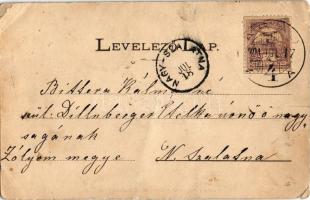 LEVELEZŐ-LAP.
NAGY-SZALATNA
Bittera Kálmánné
szül: Dillnberger Etelka úrnő ő nagy
ságának
Zólyom megye N. Szalatna